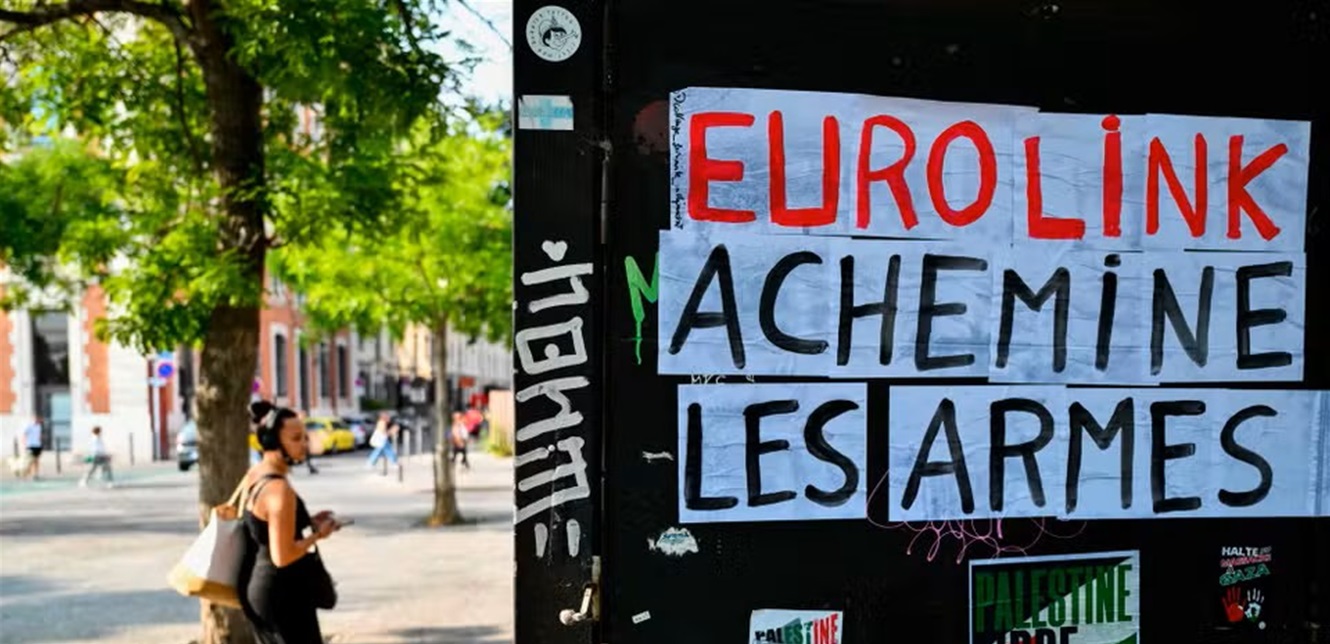 EUROLiNK
ACHEMiNE
LES ARMES
PALESTINE
PALESTINE
HALTE
GAZA